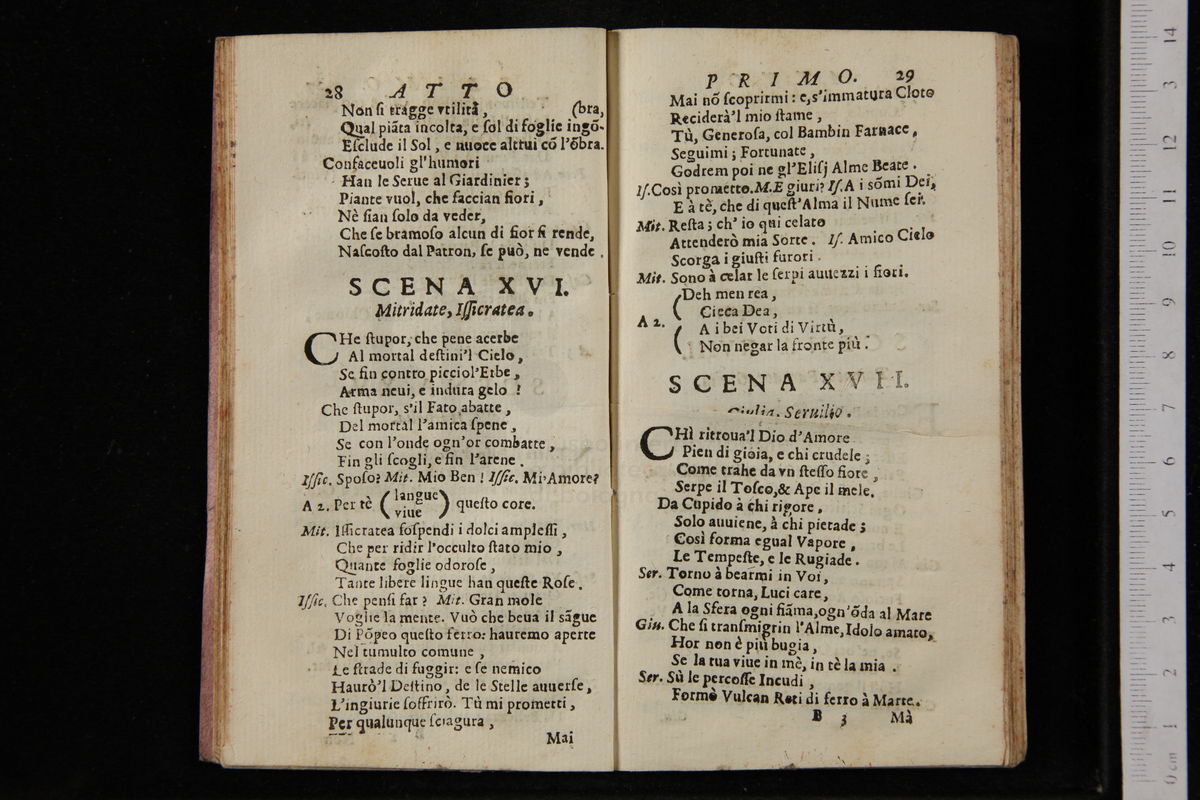 28 ATTO
Non ſi tragge vtilità, (bra,
Qual piāta incolta, e ſol di foglie ingō-
Eſclude il Sol, e nuoce altrui cō l'ōbra.
Confaceuoli gl'humori
Han le Serue al Giardinier;
Piante vuol, che faccian fiori,
Nè ſian ſolo da veder,
Che ſe bramoſo alcun di fior ſi rende,
Naſcoſto dal Patron, ſe può, ne vende.
SCENA XVI.
Mitridate, Iſſicratea.
CHe ſtupor, che pene acerbe
Al mortal deſtini'l Cielo,
Se fin contro picciol'Erbe,
Arma neui, e indura gelo!
Che ſtupor, s'il Fato abatte,
Del mortal l'amica ſpene,
Se con l'onde ogn'or combatte,
Fin gli ſcogli, e fin l'arene.
Iſſic. Spoſo? Mit. Mio Ben! Iſſic. Mi'Amore?
A 2. Per tè (langue viue) queſto core.
Mit. Iſſicratea ſoſpendi i dolci ampleſſi,
Che per ridir l'occulto ſtato mio,
Quante foglie odoroſe,
Tante libere lingue han queſte Roſe.
Iſſic. Che penſi far? Mit. Gran mole
Voglie la mente. Vuò che beua il sāgue
Di Pōpeo queſto ferro: hauremo aperte
Nel tumulto comune,
Le ſtrade di fuggir: e ſe nemico
Haurò'l Deſtino, de le Stelle auuerſe,
L'ingiurie ſoffrirò. Tù mi prometti,
Per qualunque ſciagura,
Mai
PRIMO. 29
Mai nō ſcoprirmi: e,s'immatura Cloto
Reciderà'l mio ſtame,
Tù, Generoſa, col Bambin Farnace,
Seguimi; Fortunate,
Godrem poi ne gl'Eliſj Alme Beate.
Iſ. Così prometto. M. E giuri? Iſ. A i sōmi Dei,
E à tè, che di queſt'Alma il Nume ſei.
Mit. Reſta; ch' io qui celato
Attenderò mia Sorte. Iſ. Amico Cielo
Scorga i giuſti furori.
Mit. Sono à celar le ſerpi auuezzi i fiori.
(Deh men rea,
( Cieca Dea,
A 2.
( A i bei Voti di Virtù,
( Non negar la fronte più.
SCENA XVII.
Giulia. Seruilio.
CHì ritroua'l Dio d'Amore
Pien di gioia, e chi crudele;
Come trahe da vn ſteſſo fiore,
Serpe il Toſco,& Ape il mele.
Da Cupido à chi rigore,
Solo auuiene, à chi pietade;
Così forma egual Vapore,
Le Tempeſte, e le Rugiade.
Ser. Torno à bearmi in Voi,
Come torna, Luci care,
A la Sfera ogni fiāma,ogn'ōda al Mare
Giu. Che ſi tranſmigrin l'Alme,Idolo amato,
Hor non è più bugia,
Se la tua viue in mè, in tè la mia.
Ser. Sù le percoſſe Incudi,
Formò Vulcan Reti di ferro à Marte.
B 3 Mà
14
13
12
11
10
9
8
7
6
5
4
3
2
1
0 cm